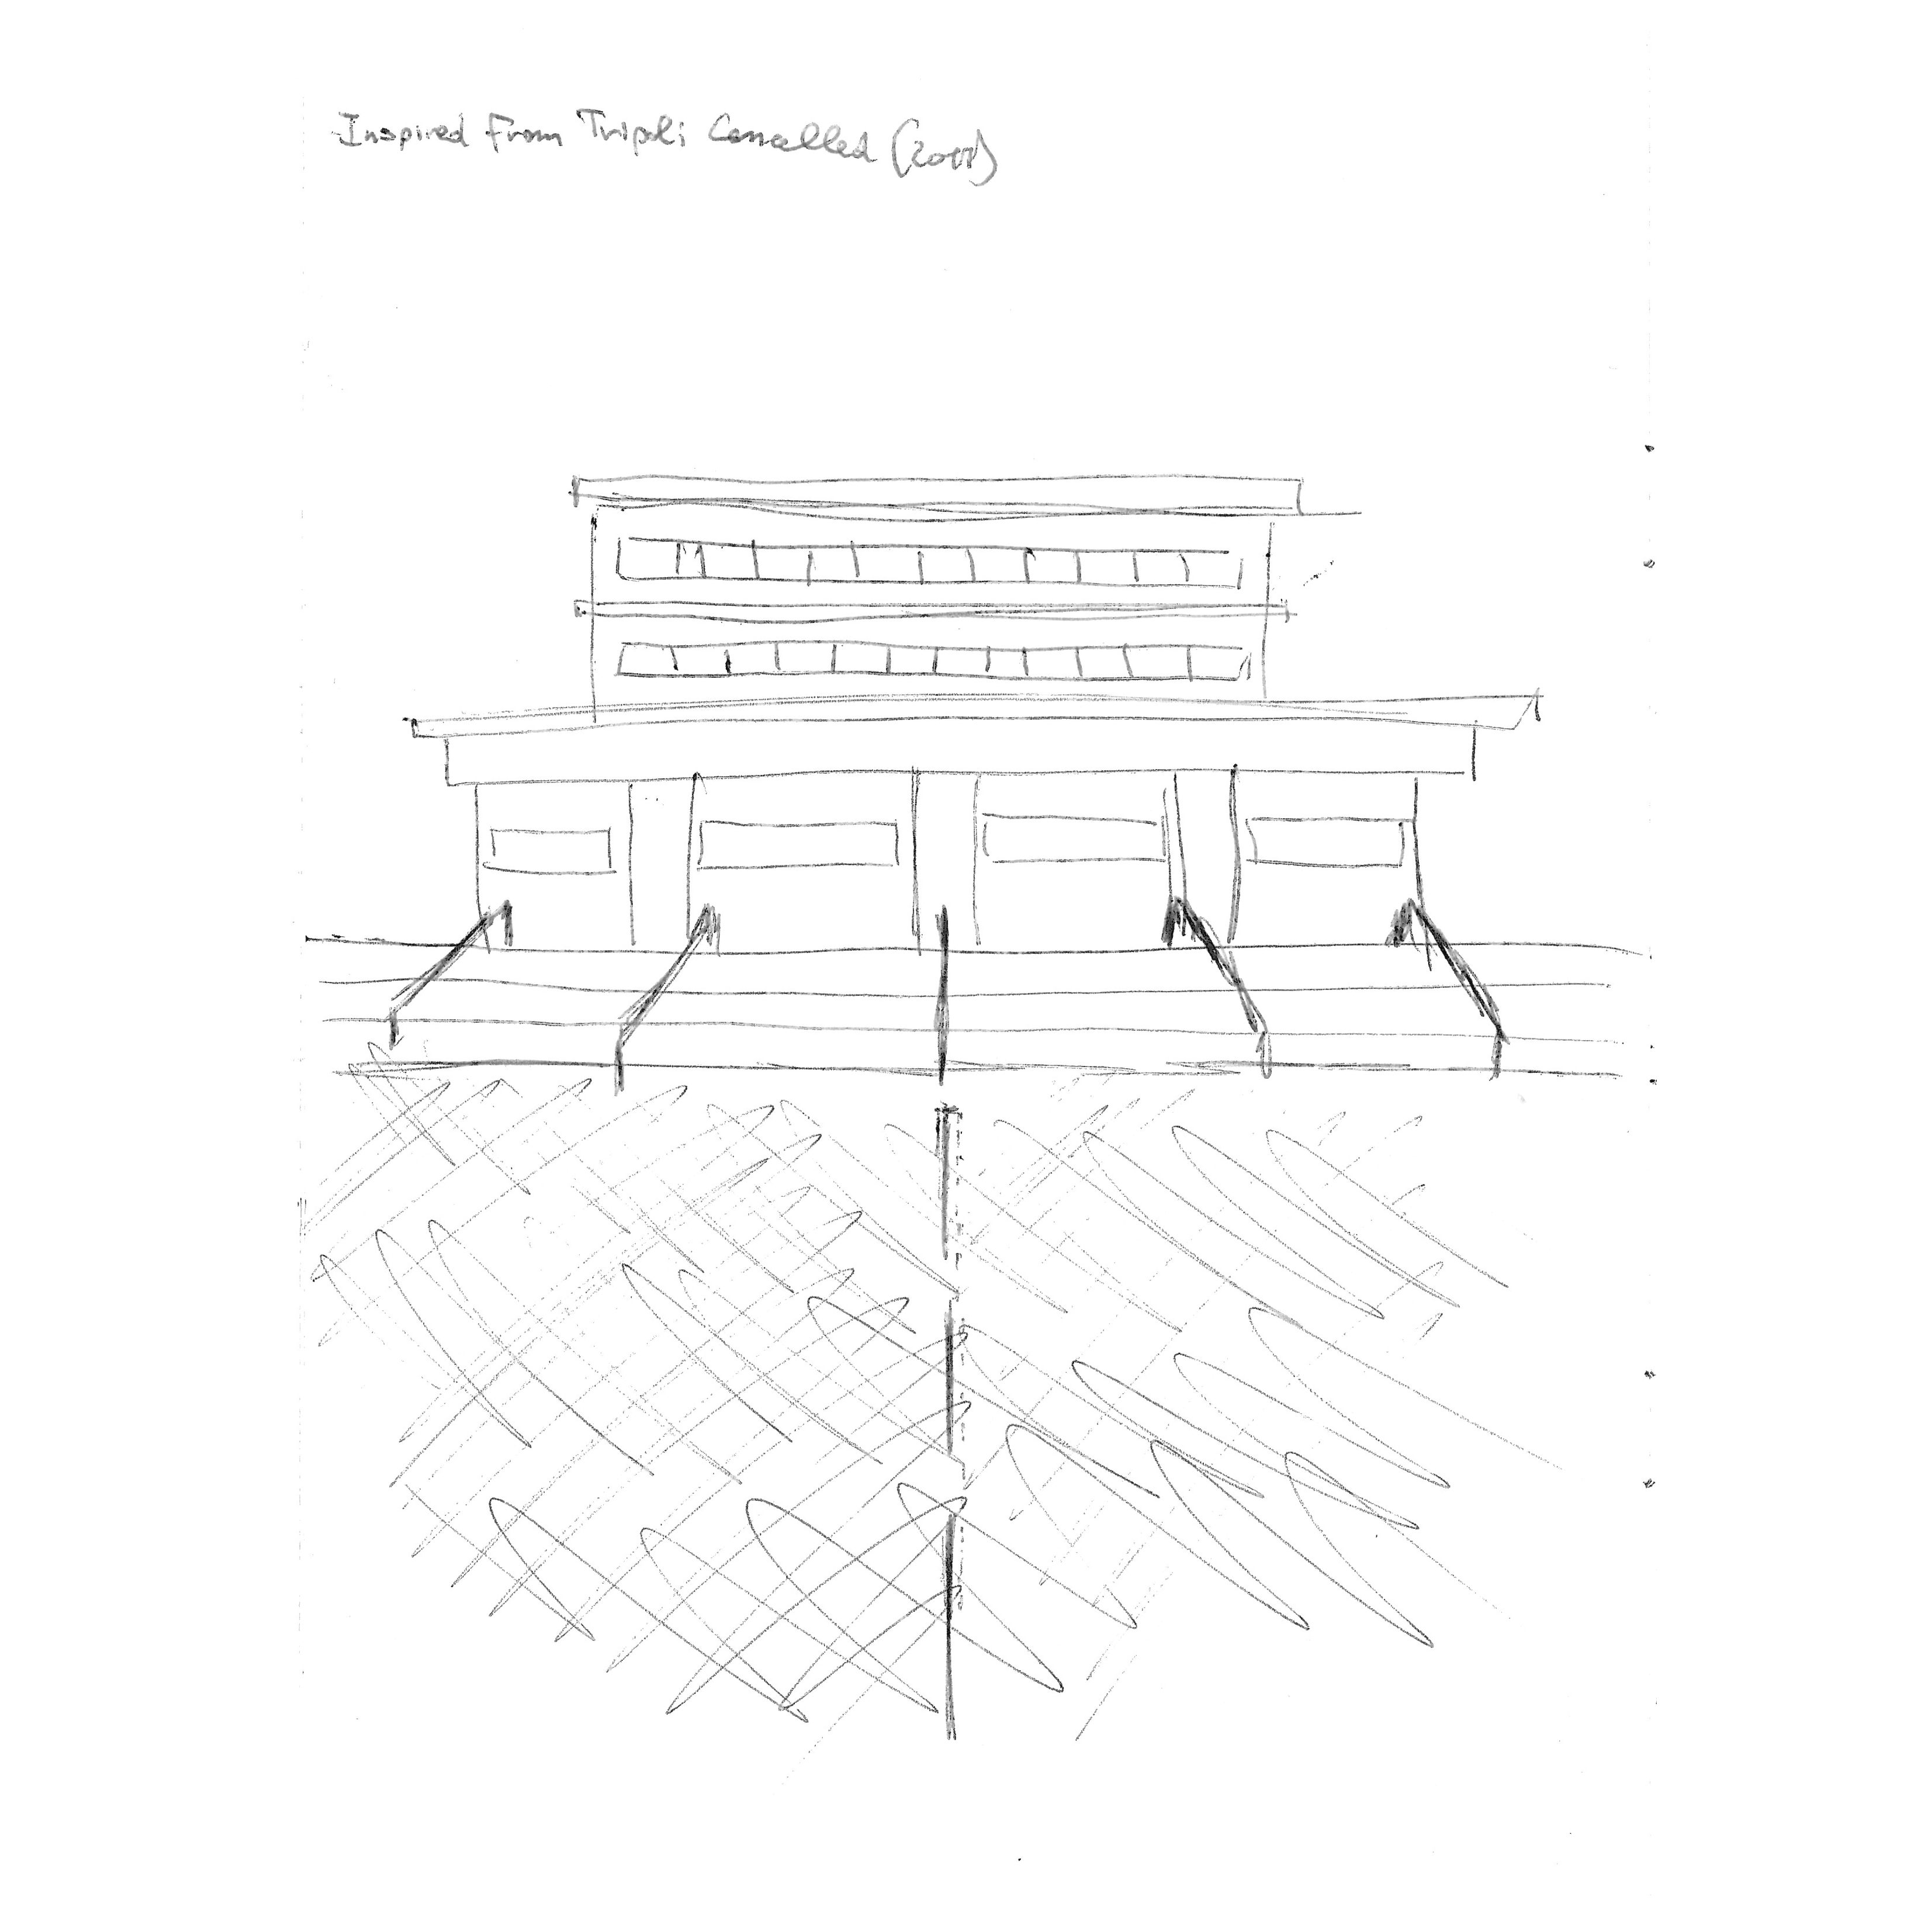 Inspired From Tripoli Cancelled